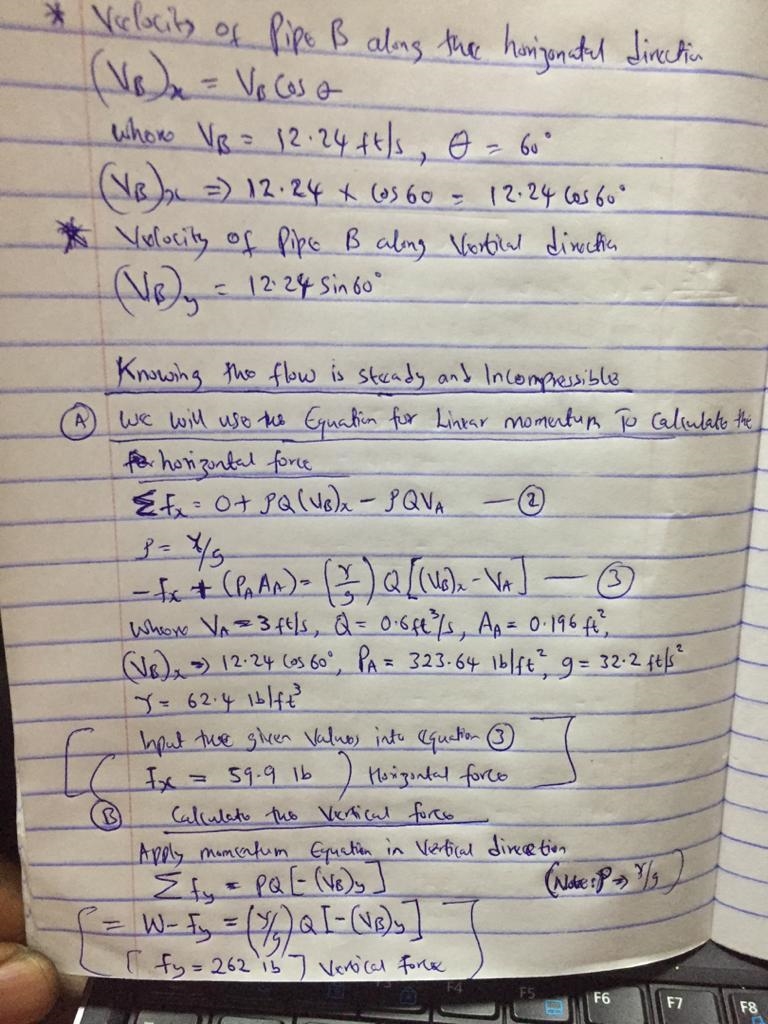 * Velocity of Pipe B along the horizonatal direction
(VB)x = VB Cos θ
where VB = 12.24 ft/s, θ = 60°
(VB)x => 12.24 x Cos 60 = 12.24 Cos 60°
* Velocity of Pipe B along Vertical direction
(VB)y = 12.24 Sin 60°
Knowing the flow is steady and Incompressible
(A) We will use the Equation for Linear momentum To Calculate the
horizontal force
Σfx = 0 + ρQ(VB)x - ρQVA — (2)
ρ = γ/g
-fx + (PA AA) = (γ/g) Q [(VB)x - VA] — (3)
Where VA = 3 ft/s, Q = 0.6 ft³/s, AA = 0.196 ft²,
(VB)x => 12.24 Cos 60°, PA = 323.64 lb/ft², g = 32.2 ft/s²
γ = 62.4 lb/ft³
Input the given Values into equation (3)
Fx = 59.9 lb ) Horizontal force
(B) Calculate the Vertical force
Apply momentum Equation in Vertical direction
Σ fy = ρQ [-(VB)y] (Note: ρ => γ/g)
= W - Fy = (γ/g) Q [-(VB)y]
[ fy = 262 lb ] Vertical force
F4 F5 F6 F7 F8